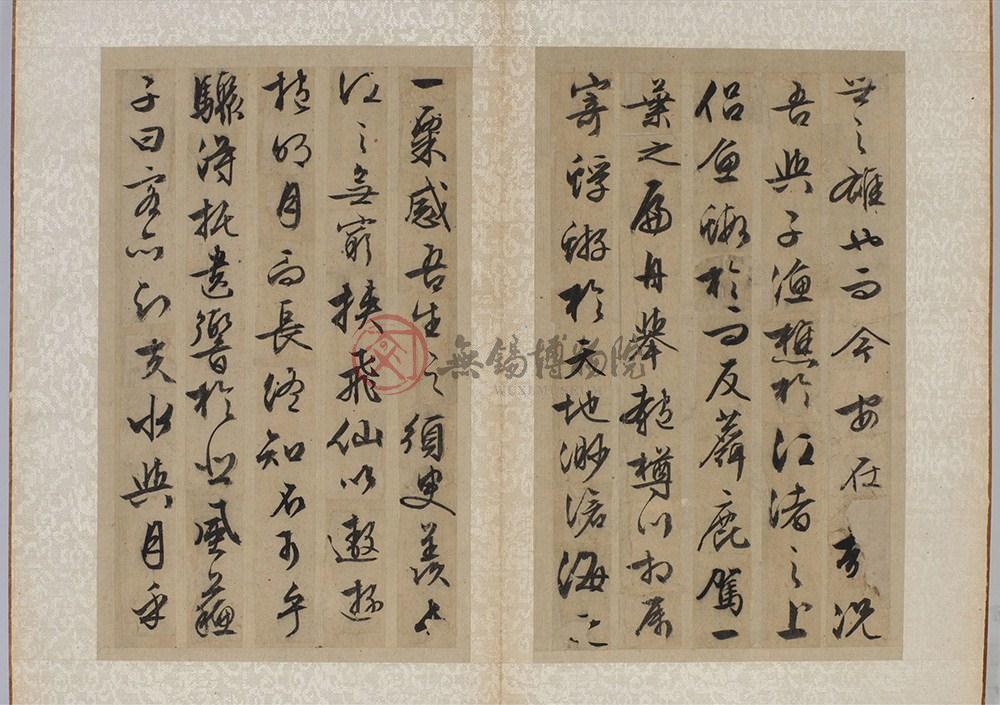 世之雄也而今安在哉況
吾與子漁樵於江渚之上
侶魚蝦於而友麋鹿駕一
葉之扁舟舉匏樽以相屬
寄蜉蝣於天地渺滄海之
一粟感吾生之須臾羨長
江之無窮挾飛仙以遨遊
抱明月而長終知不可乎
驟得托遺響於悲風蘇
子曰客亦知夫水與月乎
無錫博物院
WUXI MUSEUM